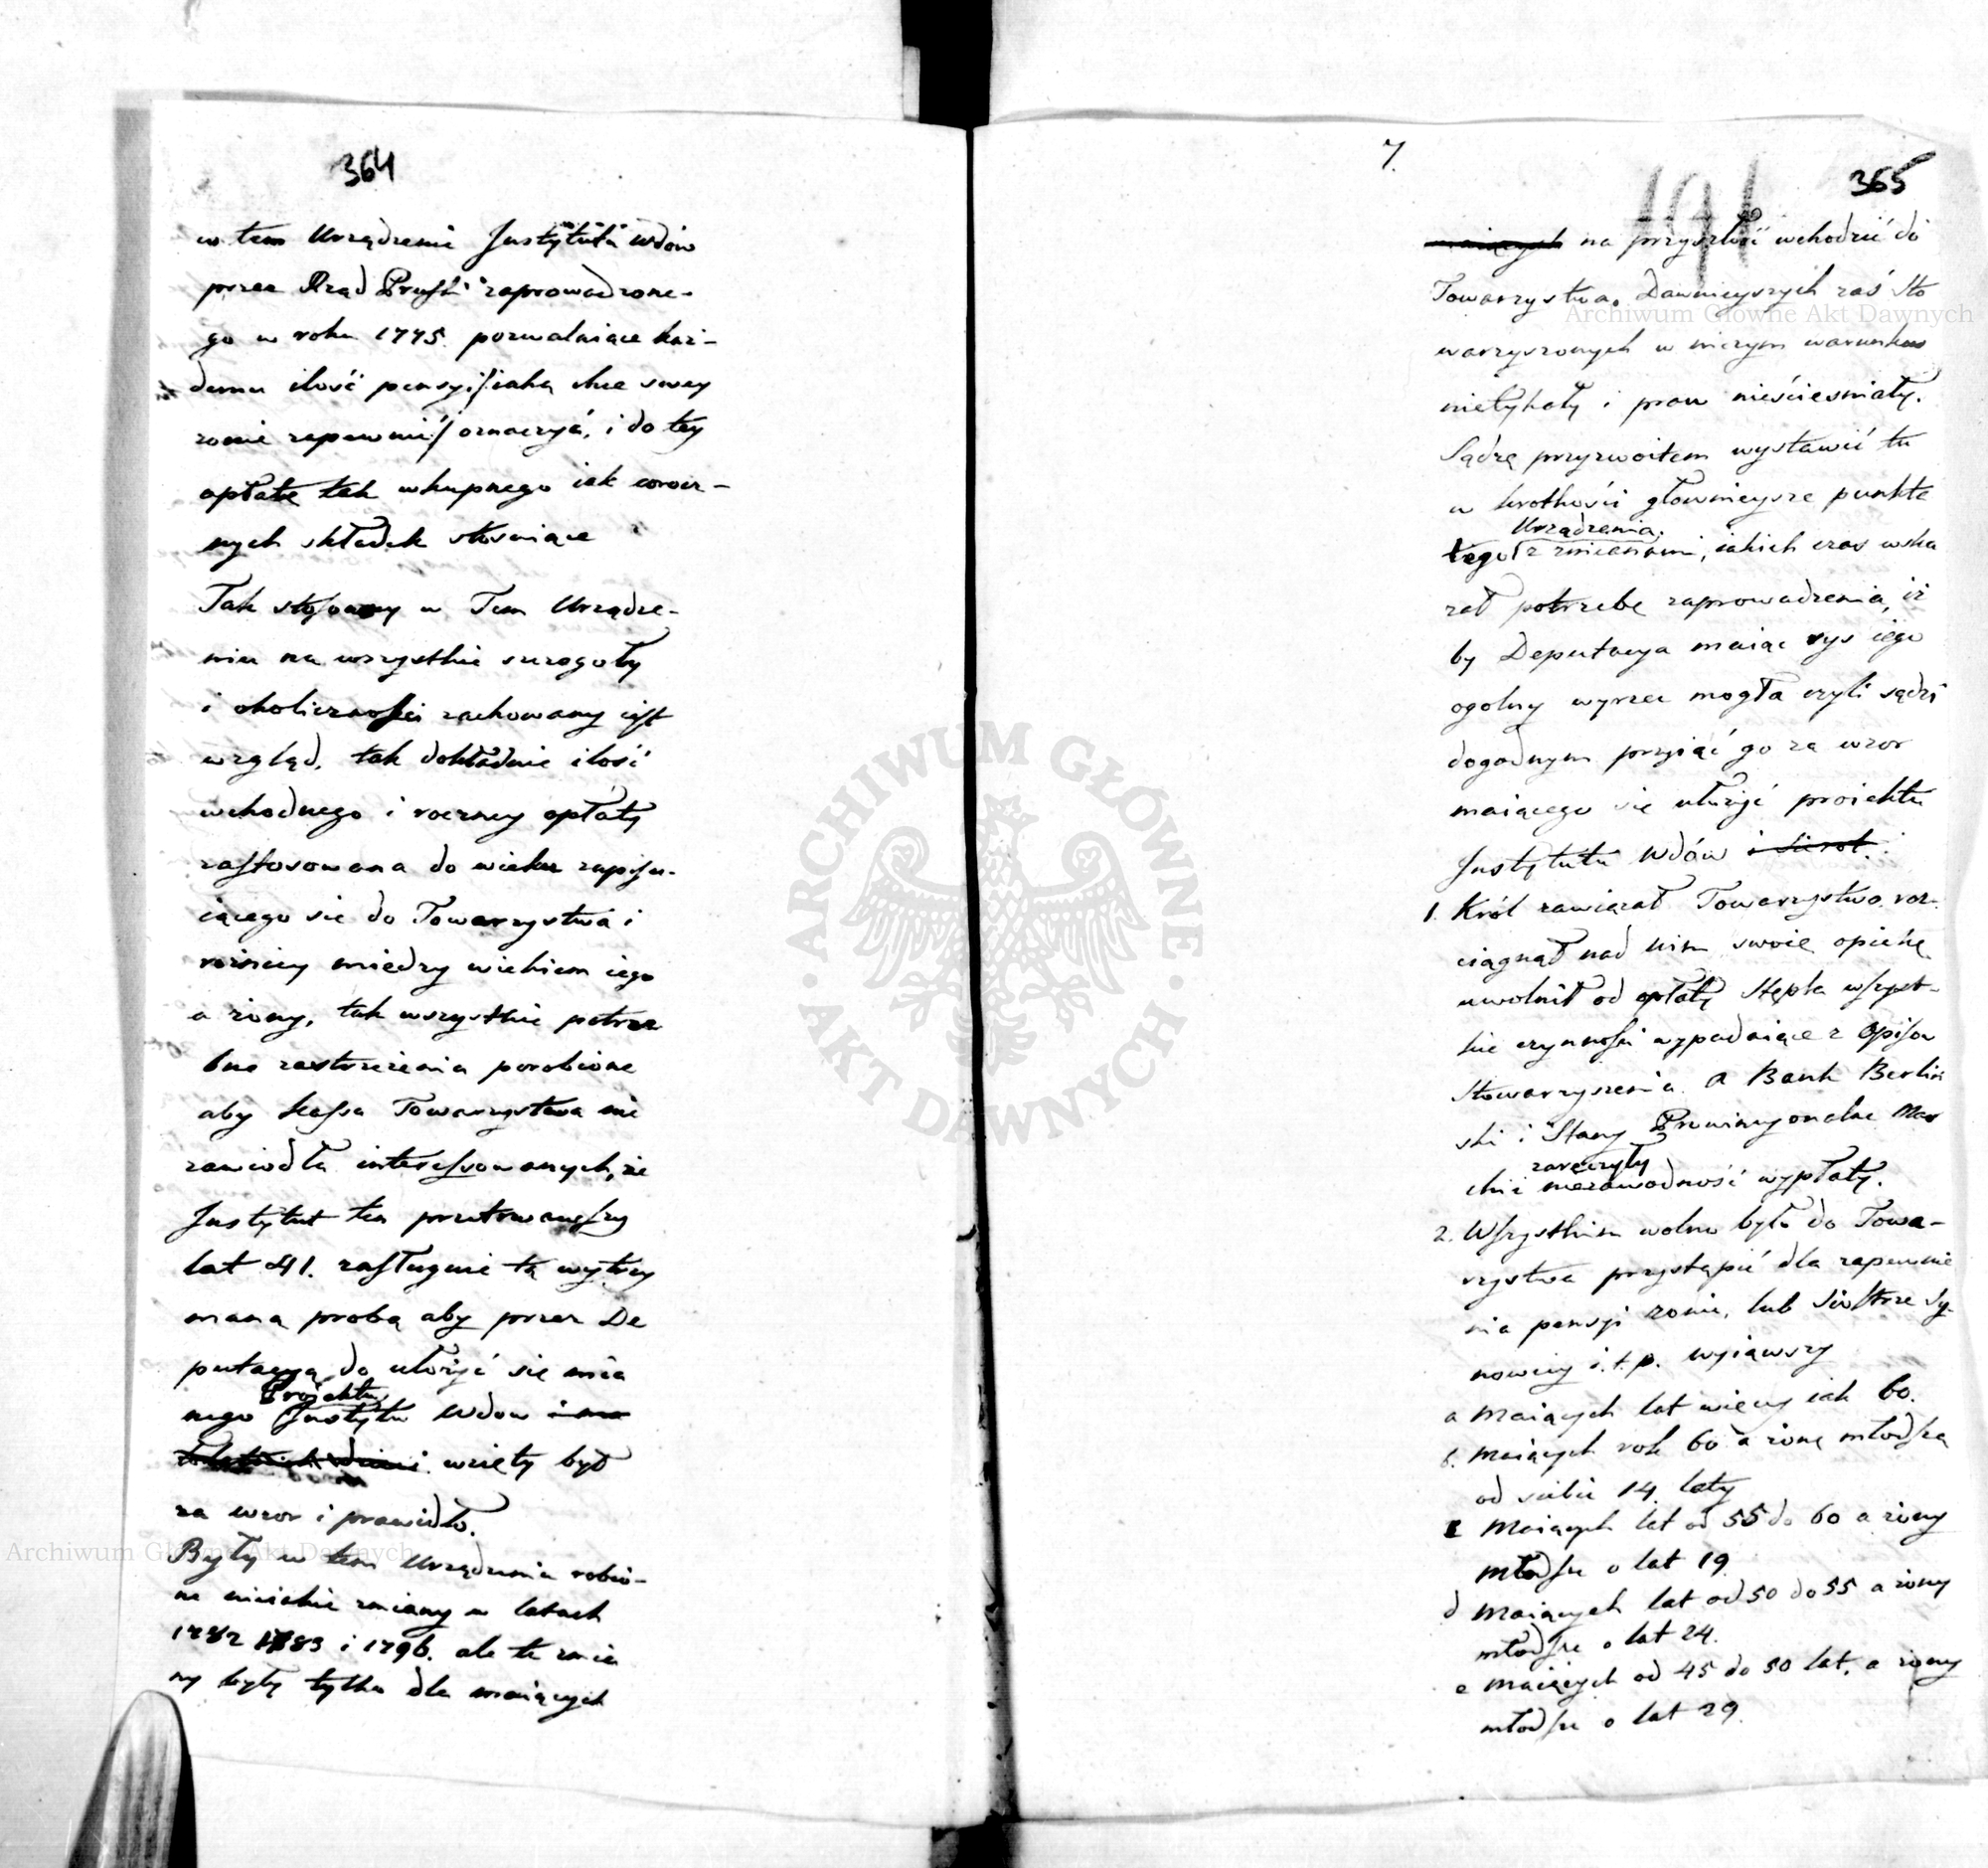 364
w tem Urządzenie Instytutu Wdów
przez Rząd Pruski zaprowadzone-
go w roku 1775. pozwalaiące każ-
demu ilość pensyi /iaką chce swey
żonie zapewnić/ oznaczyć, i do tey
opłatę tak wkupnego iak rocz-
nych składek stosuiące
Tak stosowny w Tem Urządze-
niu na wszystkie szczegoły
i okoliczności zachowany iest
wzgląd, tak dokładnie ilość
wchodnego i roczney opłaty
zastosowana do wieku zapisu-
iącego się do Towarzystwa i
rożnicy miedzy wiekiem iego
a żony, tak wszystkie potrze
bne zastrzeżenia porobione
aby Kassa Towarzystwa nie
zawiodła interessowanych, że
Instytut ten przetrwawszy
lat 41. zasługuie tą wytrzy
maną probą aby przez De
putacyą do ułożyć się mia
Projektu
nego Instytu Wdow
wzięty był
za wzor i prawidło.
Były w tem Urządzeniu robio-
ne nieiakie zmiany w latach
1782 1783 i 1796. ale te zmia
ny były tylko dla maiących
7.
191
365
maiących na przyszłość wchodzić do
Towarzystwa. Dawnieyszych zaś Sto
warzyszonych w niczym warunków
nietykały i praw nieścieśniały.
Sądzę przyzwoitem wystawić tu
w krotkości głownieysze punkta
Urządzenia.
tego z zmianami, iakich czas wska
zał potrzebę zaprowadzenia, iż
by Deputacya maiąc rys iego
ogolny wyrzec mogła czyli sądzi
dogodnym przyiąć go za wzor
maiącego się ułożyć proiektu
Instytutu Wdów i Sierot.
1. Król zawiązał Towarzystwo. roz-
ciągnął nad nim swoię opiekę
uwolnił od opłaty Stępla wszyst-
kie czynności wypadaiące z Opisu
Stowarzyszenia. a Bank Berliń
ski i Stany Prowincyonalne Mar
zaręczyły
chii niezawodność wypłaty.
2. Wszystkim wolno było do Towa-
rzystwa przystąpić dla zapewnie
nia pensyi żonie, lub Siostrze Sy-
nowicy i.t.p. wyiąwszy
a Maiących lat więcey iak 60.
b. Maiących rok 60 a żonę młodszą
od siebie 14. laty
c Maiących lat od 55 do 60 a żony
młodsze o lat 19.
d Maiących lat od 50 do 55 a żony
młodsze o lat 24.
e Maiących od 45 do 50 lat, a żony
młodsze o lat 29.
Archiwum Główne Akt Dawnych
ARCHIWUM GŁÓWNE
AKT DAWNYCH
Archiwum Główne Akt Dawnych